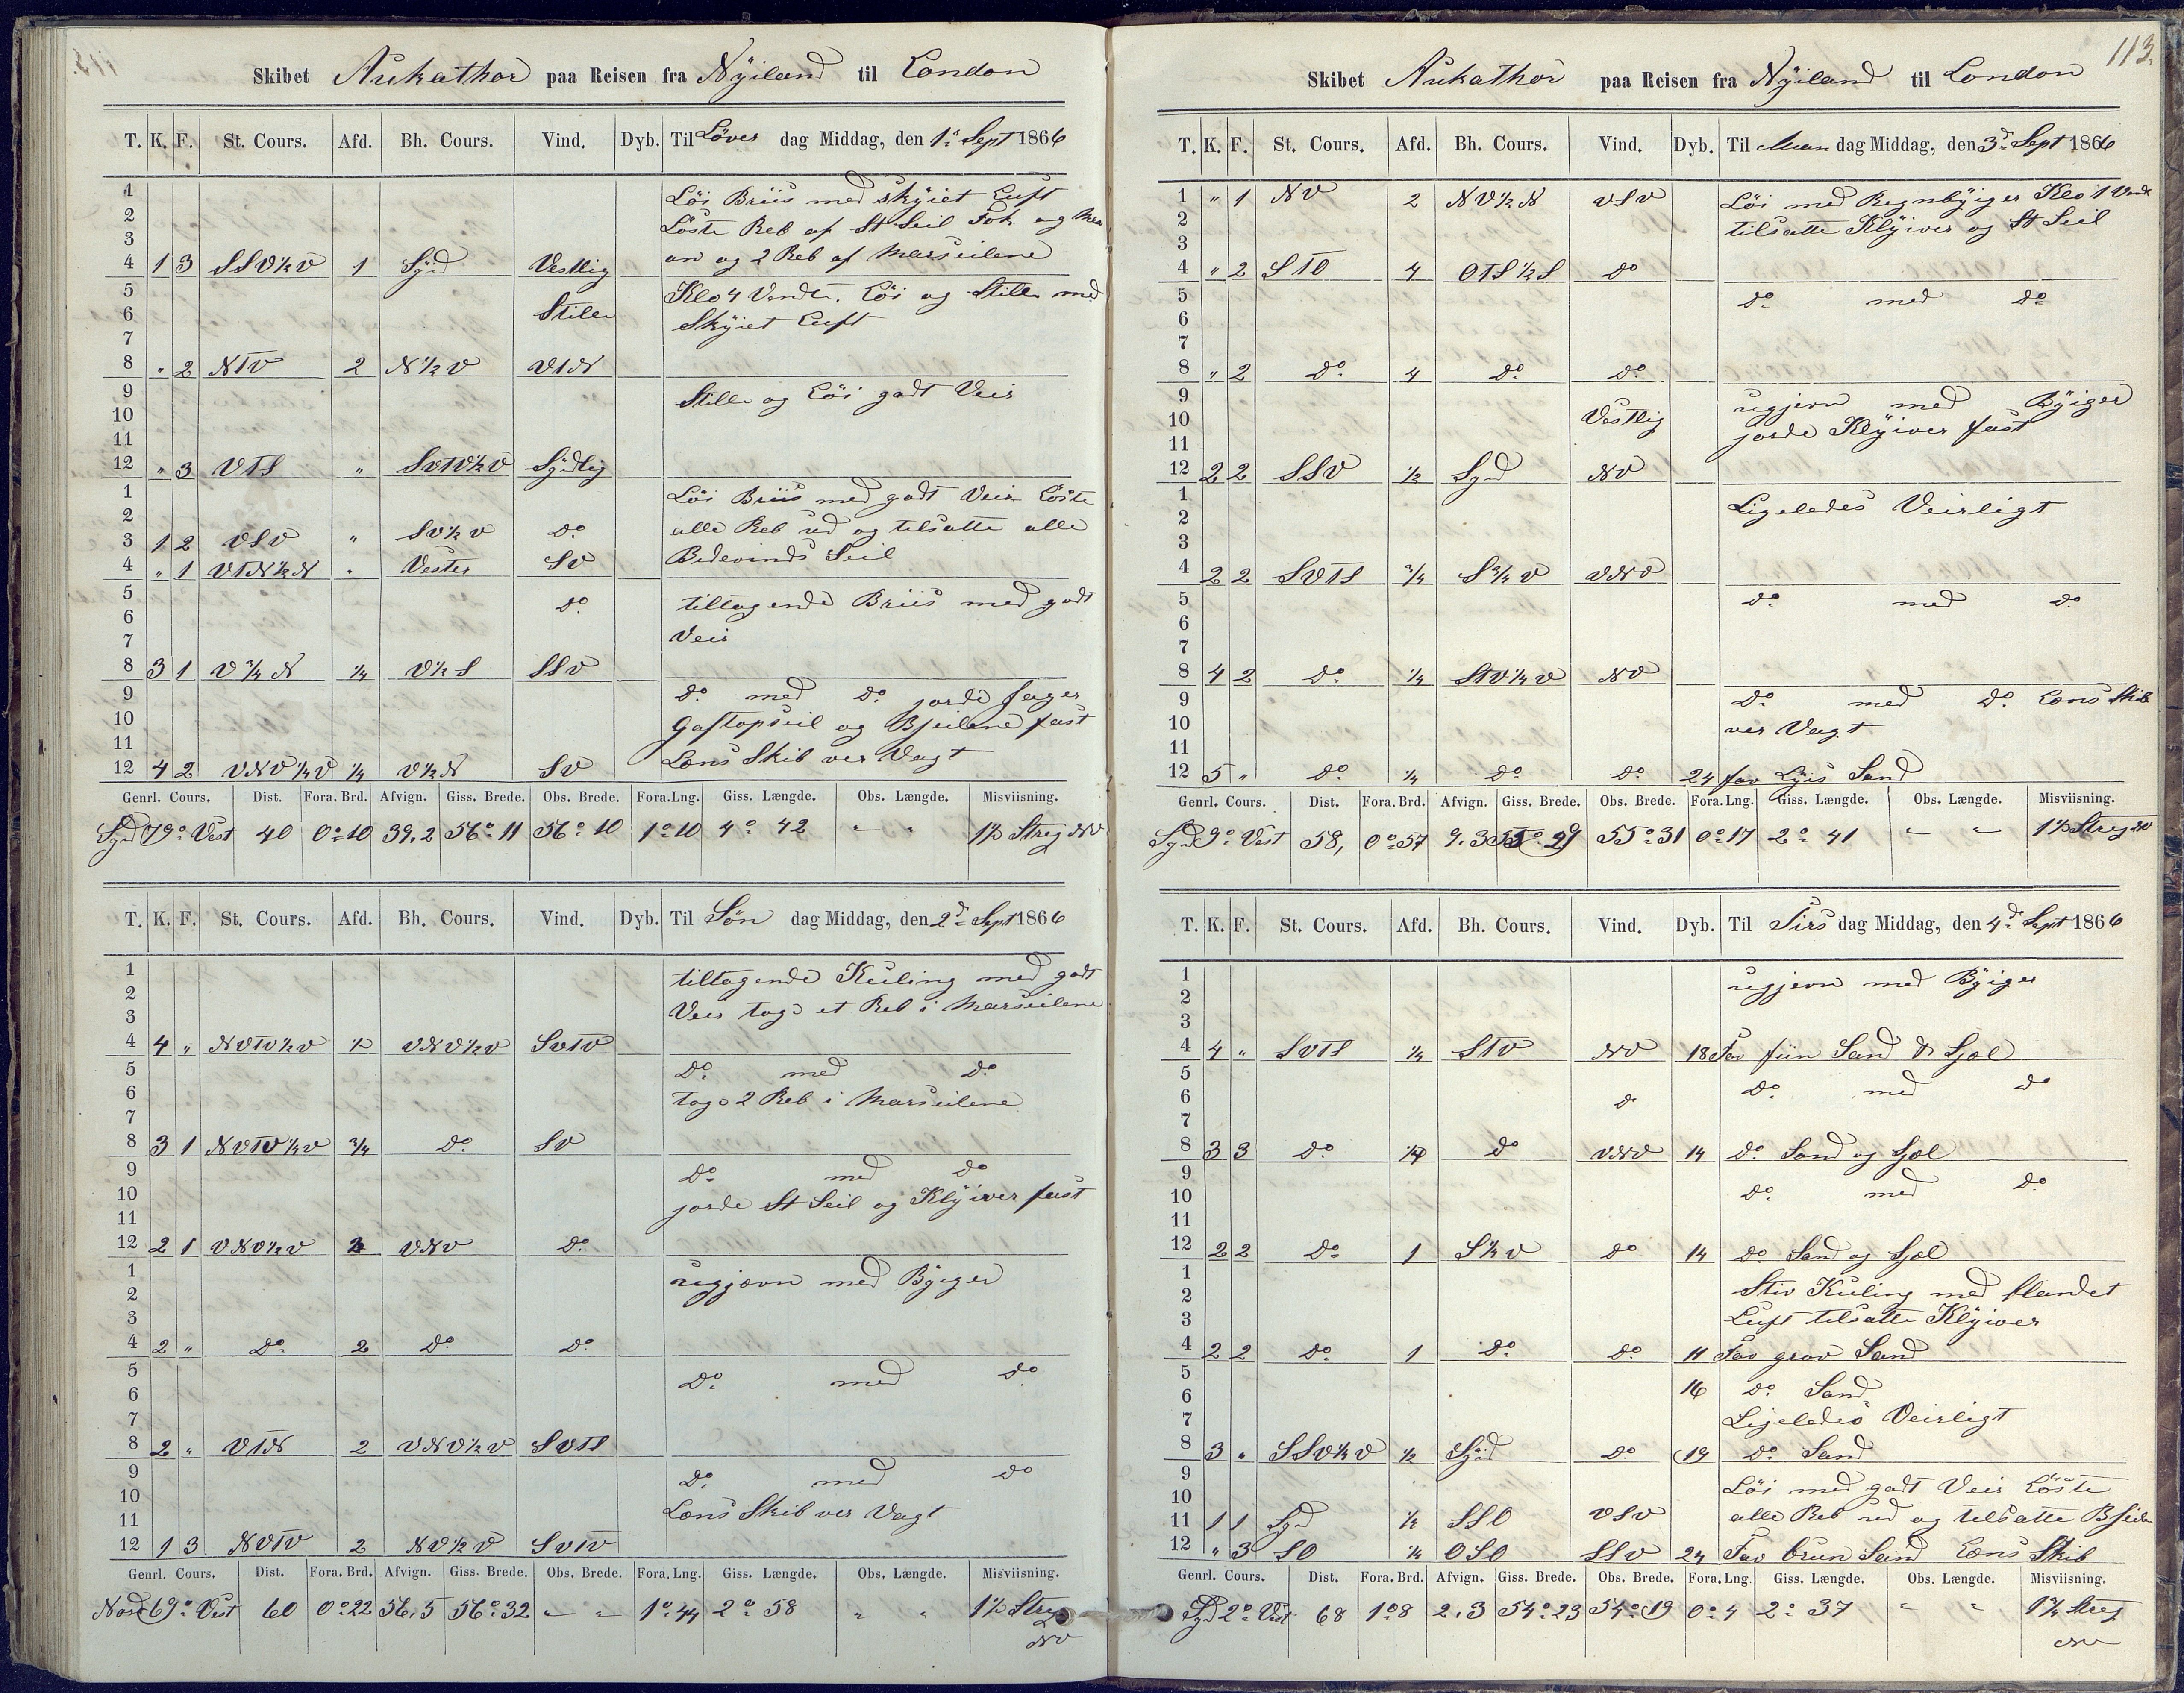 Skibet Aukathor paa Reisen fra Nÿland til London
T. K. F. St. Cours. Afd. Bh. Cours. Vind. Dyb. Til Löver dag Middag, den 1ˢ Sept 1866
1 Löi Briis med skÿiet Luft
2 Löste Reb af St Seil Fok og Mes
3 an og 2 Reb af Marseilene
4 1 3 SSV½V 1 Sÿd Vestlig
5 Klo 4 Vendte. Löi og Stille med
6 Stille Skÿiet Luft
7
8 " 2 NTV 2 N½V VTN
9 Stille og Löi godt Veir
10
11
12 " 3 VTS " SVTV½V Sÿdlig
1 Löi Briis med godt Veir Löste
2 alle Reb ud og tilsatte alle
3 1 2 VSV " SV½V Do
4 " 1 VTN½N " Vester SV Bidevinds Seil
5 Do tiltagende Briis med godt
6 Veir
7
8 3 1 V¾N ¼ V½S SSV
9 Do med Do jorde Jager
10 Gaftopseil og Bseilene fast
11 Lens Skib ver Vagt
12 4 2 VNV¼V ¼ V½N SV
Genrl. Cours. Dist. Fora. Brd. Afvign. Giss. Brede. Obs. Brede. Fora. Lng. Giss. Længde. Obs. Længde. Misviisning.
Syd 79° Vest 40 0°10 39,2 56°11 56°10 1°10 4°42 " " 1½ Streg NV
T. K. F. St. Cours. Afd. Bh. Cours. Vind. Dyb. Til Sön dag Middag, den 2ᵈ Sept 1866
1 tiltagende Kuling med godt
2 Veir tog et Reb i Marseilene
3
4 4 " NVTV½V ½ VNV½V SVTV
5 Do med Do
6 tog 2 Reb i Marseilene
7
8 3 1 NVTV¼V ¾ Do SV
9 Do med Do
10 jorde St Seil og Klÿiver fast
11
12 2 1 VNV½V 2 VNV Do
1 ugjævn med Bÿger
2
3
4 2 " Do 2 Do Do
5 Do med Do
6
7
8 2 " VTN 2 VNV½V SVTS
9 Do med Do
10 Lens Skib ver Vagt
11
12 1 3 NVTV 2 NV½V SVTV
Genrl. Cours. Dist. Fora. Brd. Afvign. Giss. Brede. Obs. Brede. Fora. Lng. Giss. Længde. Obs. Længde. Misviisning.
Nord 69° Vest 60 0°22 56,5 56°32 " " 1°44 2°58 " " 1½ Streg
NV
113.
Skibet Aukathor paa Reisen fra Nÿland til London
T. K. F. St. Cours. Afd. Bh. Cours. Vind. Dyb. Til Man dag Middag, den 3ᵈ Sept 1866
1 " 1 NV 2 NV½N VSV Löi med Regnbÿiger Klo 1 Vendt
2 tilsatte Klÿiver og St Seil
3
4 " 2 STO 4 OTS½S Do
5 Do med Do
6
7
8 " 2 Do 4 Do Do
9 ugjevn med Bÿiger
10 Vestlig jorde Klÿiver fast
11
12 2 2 SSV ½ Syd NV
1 Ligeledes Veirligt
2
3
4 2 2 SVTS ¾ S¾V VNV
5 Do med Do
6
7
8 4 2 Do ¼ STV¼V NV
9 Do med Do Lens Skib
10 ver Vagt
11
12 5 " Do ¼ Do Do 24 fav Lÿis Sand
Genrl. Cours. Dist. Fora. Brd. Afvign. Giss. Brede. Obs. Brede. Fora. Lng. Giss. Længde. Obs. Længde. Misviisning.
Syd 9° Vest 58, 0°57 9.3 55°29 55°31 0°17 2°41 " " 1½ Streg NV
T. K. F. St. Cours. Afd. Bh. Cours. Vind. Dyb. Til Tirs dag Middag, den 4ᵈ Sept 1866
1 ugjevn med Bÿiger
2
3
4 4 " SVTS ¼ STV NV 18 Fav fiin Sand & Sjæl
5 Do med Do
6 Do
7
8 3 3 Do ¼ Do VNV 14 Do Sand og Sjæl
9
10 Do med Do
11
12 2 2 Do 1 S½V Do 14 Do Sand og Sjæl
1 Stiv Kuling med blandet
2 Luft tilsatte Klÿiver
3
4 2 2 Do 1 Do Do 11 Fav grov Sand
5
6 16 Do Sand
7 Ligeledes Veirligt
8 3 " SSV½V ½ Sÿd Do 19 Do Sand
9 Löi med godt Veir Löste
10
11 1 1 Syd ¼ SSO VSV alle Reb ud og tilsatte Bseile
12 " 3 SO ¼ OSO SSV 24 Fav brun Sand Lens Skib
Genrl. Cours. Dist. Fora. Brd. Afvign. Giss. Brede. Obs. Brede. Fora. Lng. Giss. Længde. Obs. Længde. Misviisning.
Syd 2° Vest 68 1°8 2,3 54°23 54°19 0°4 2°37 " " 1¾ Streg
NV